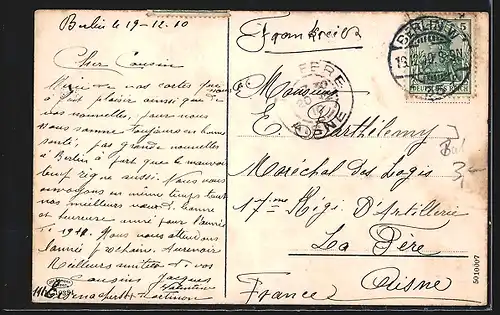 Berlin le 19-12.10
Cher Cousin
Merci de vos cartes qui nous
a fait plaisir aussi que de
vos nouvelles, pour nous
Nous somme toujours en bonne
santé, pas grande nouvelles
à Berlin à part que le mauvais
temps règne aussi. Nous vous
envoyons en même temps tous
nos meilleurs vœux de bonne
et heureuse année pour l'année
de 1911. Nous vous attendons
l'année prochaine.
Meilleurs amitiés de vos
Cousins Jacques
Valentine
Frankreich
Monsieur
E. Barthélemy
Maréchal des Logis
17ème Régi D'Artillerie
La Fère
Aisne
France
BERLIN W
19.12.10 8-9N
35
5
LA FERE
AISNE
Bal
3,-
5010007